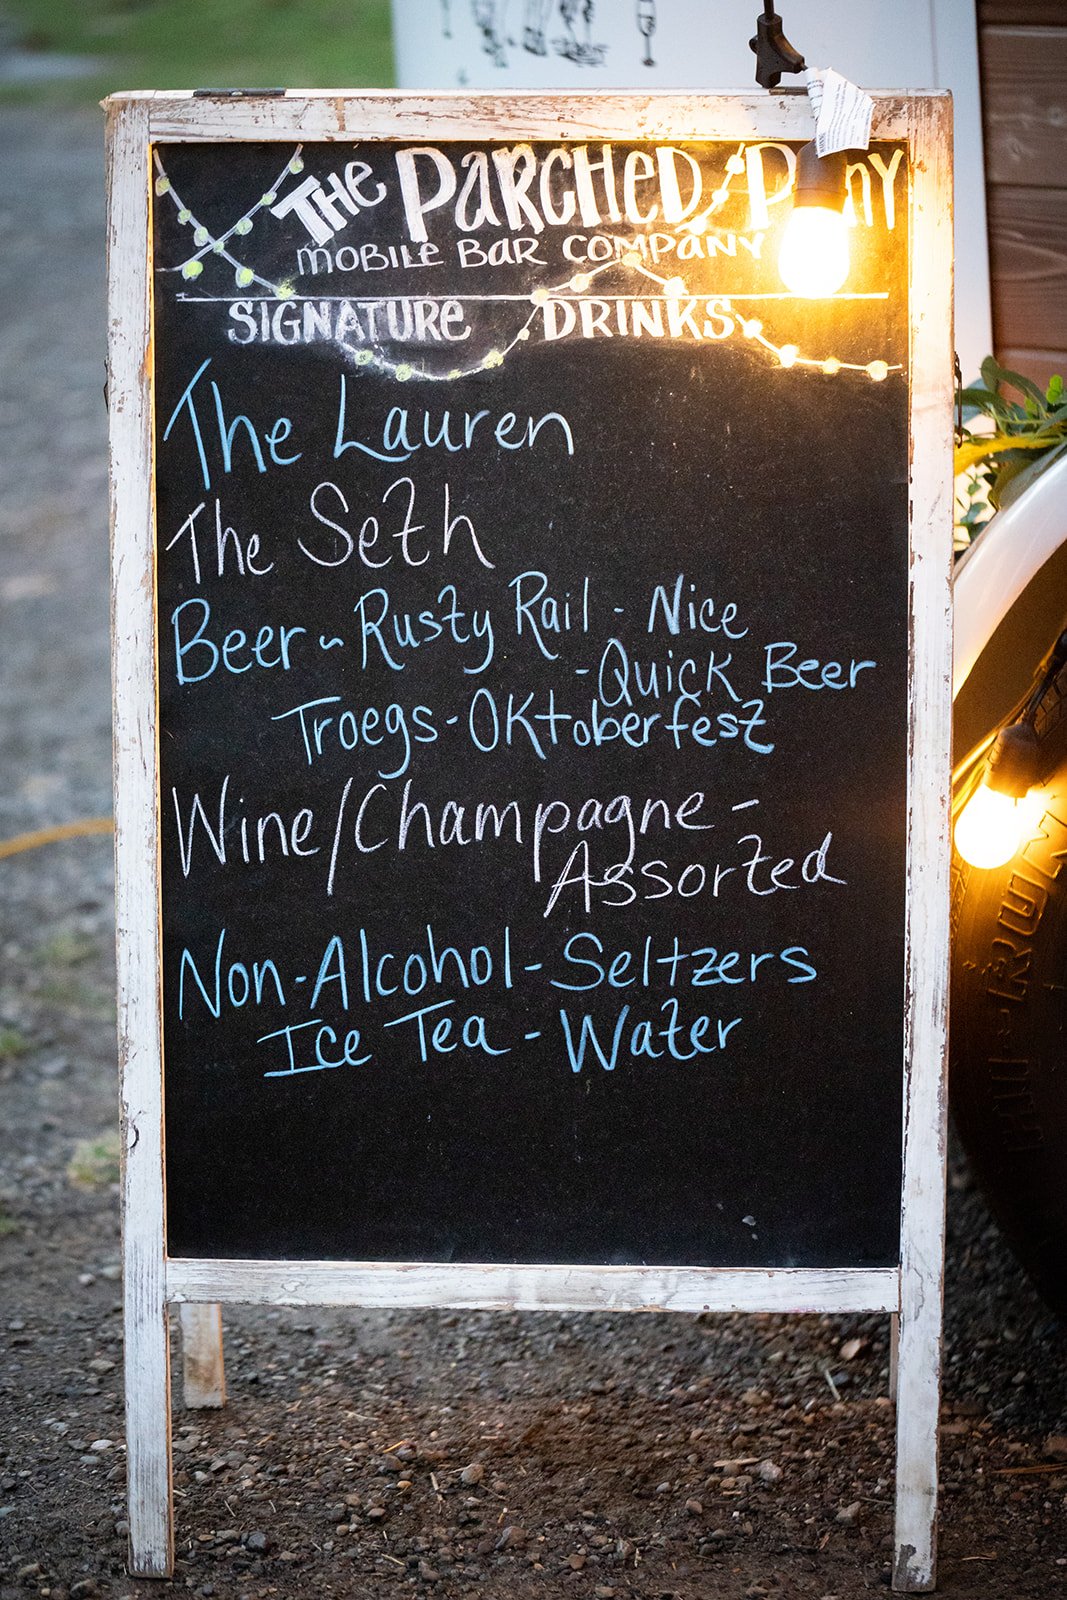 The Parched P ny
mobile Bar Company
Signature Drinks
The Lauren
The Seth
Beer ~ Rusty Rail - Nice
- Quick Beer
Troegs - Oktoberfest
Wine/Champagne -
Assorted
Non-Alcohol - Seltzers
Ice Tea - Water